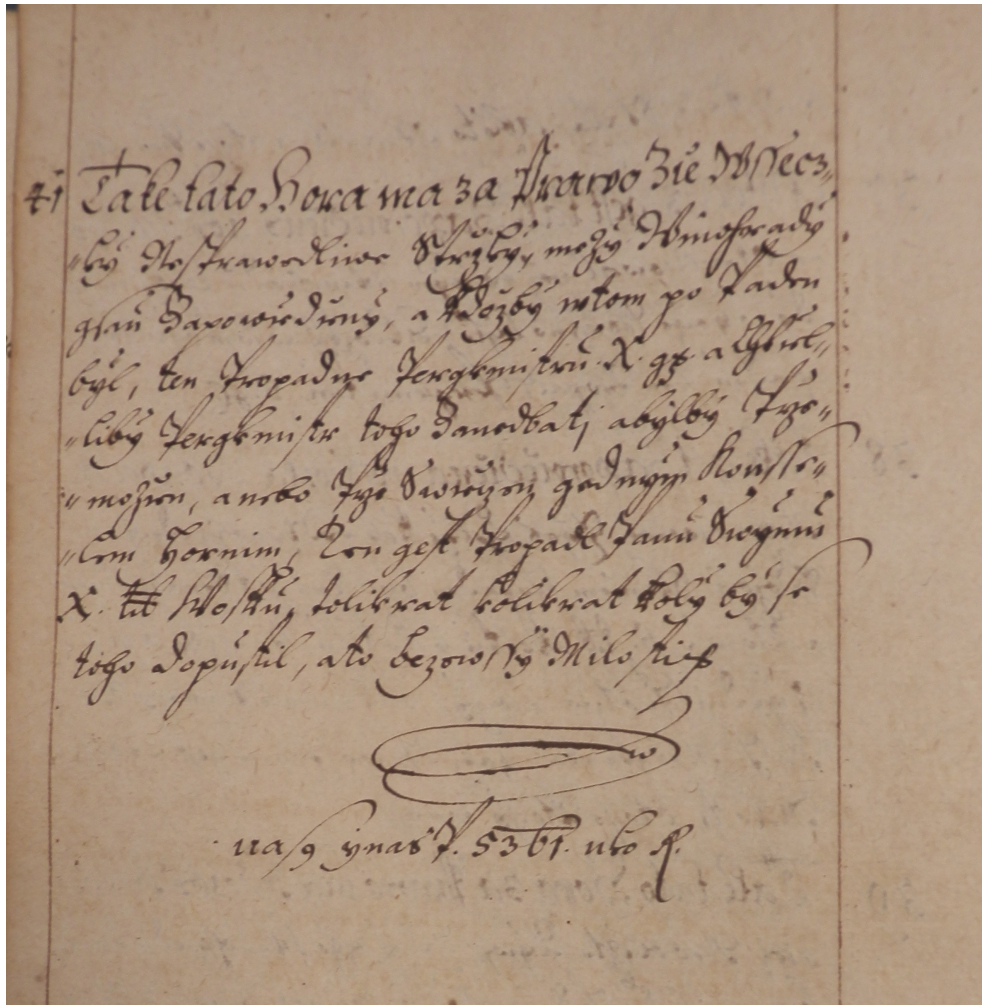 41 Take tato Hora ma za Prawo Zie Wssecz„
„ky Nesprawedliwe Stezky, mezy Winohrady
gsau Zapowiedieny, a kdozby wtom po Paden
byl, ten Propadne Pergkmistru X. gr. a Chtiel„
„liby Pergkmistr toho Zanedbati, abylby Prze„
„mozien, anebo Prze Swieczen gednym Konsse„
„lem Hornim, Ten gest Propadl Panu Swymu
X. lt Wosku, tolikrat kolikrat koly by se
toho dopustil, ato bezewssy Milosti